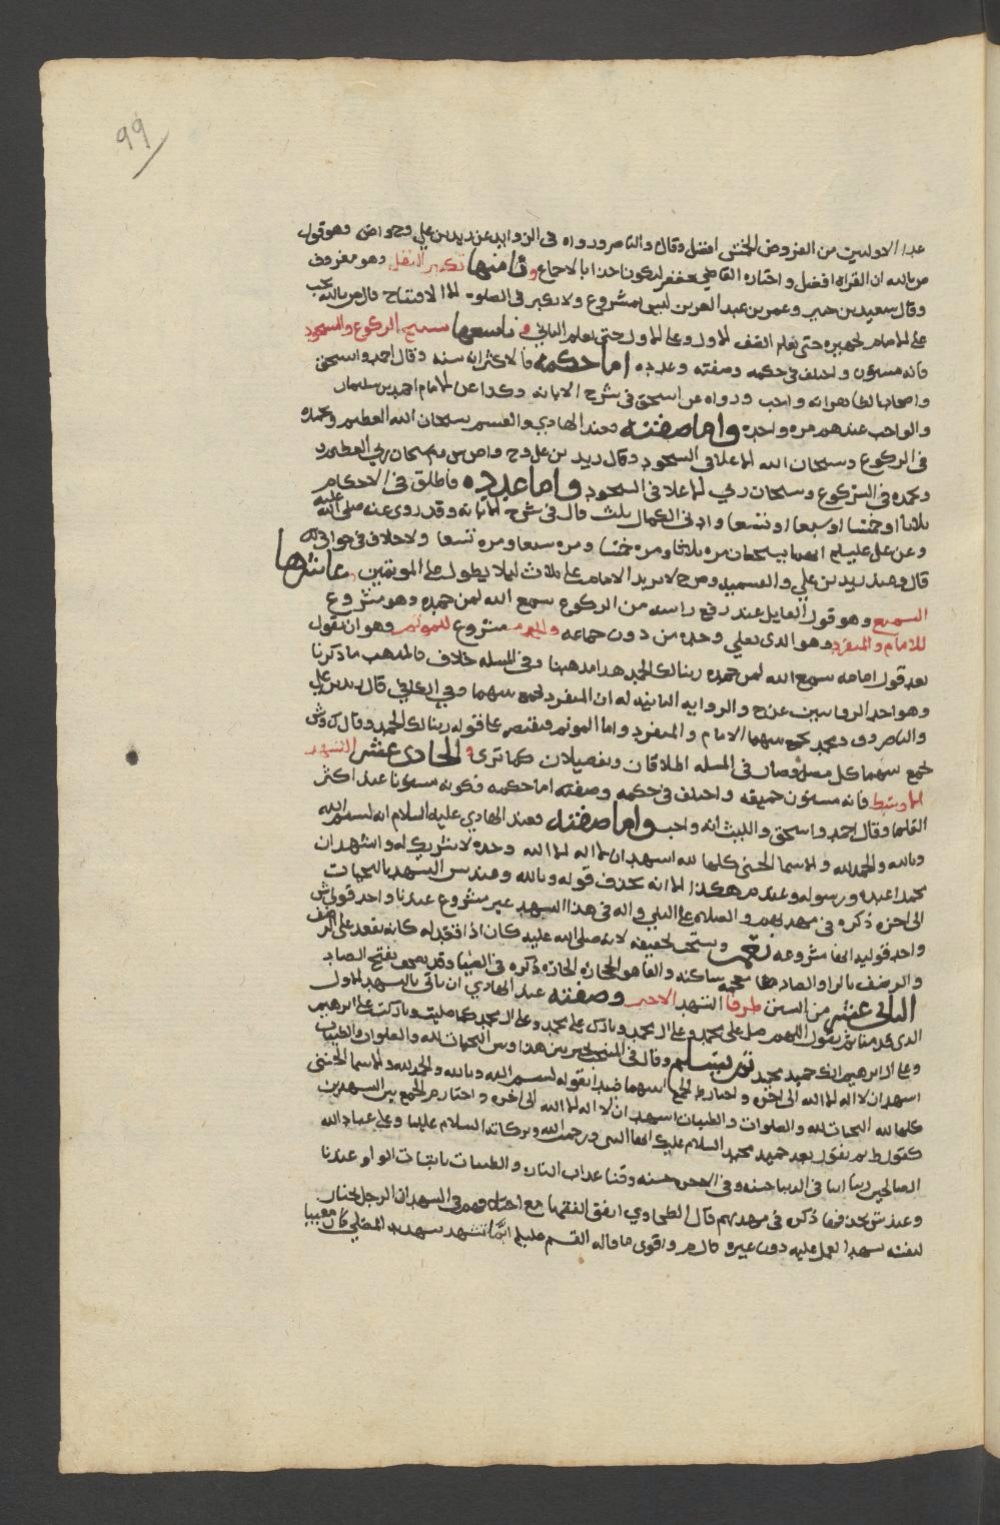 99
عدا الاولتين من الفروض الخمس افضل وقال والناصر ورواه في الزوايد عن زيد بن علي وح واص وهو قول
ص بالله ان القراه افضل واختاره القاضي جعفر ليكون اخذا بالاجماع وثامنها تكبير النقل وهو معروف
وقال سعيد بن جبير وعمر بن عبد العزيز ليس بمشروع ولا تكبير في الصلوه الا الافتتاح قال ص بالله يجب
على الامام تجهيره حتى يعلم الصف الاول وعلى الاول حتى يعلم الثاني وتاسعها تسبيح الركوع والسجود
فانه مسنون واختلف في حكمه وصفته وعدده اما حكمه فالاكثر انه سنه وقال احمد واسحق
واصحاب الظاهر انه واجب ورواه عن اسحق في شرح الابانه وكذا عن الامام احمد بن سليمان
والواجب عندهم مره واحده واما صفته فعند الهادي والقسم سبحان الله العظيم وبحمده
في الركوع وسبحان الله الاعلى في السجود وقال زيد بن علي وح وص سبحان ربي العظيم
وبحمده في الركوع وسبحان ربي الاعلا في السجود واما عدده فاطلق في الاحكام
ثلاثا او خمسا او سبعا او تسعا وادنى الكمال ثلث قال في شرح الابانه وقد روي عنه صلى الله عليه
وعن علي عليلم انهما يسبحان مره ثلاثا ومره خمسا ومره سبعا ومره تسعا ولا خلاف في جواز ذلك
قال وعند زيد بن علي والقسميه وص ح لا يزيد الامام على ثلاث ليلا يطول على الموتمين وعاشرها
السميع وهو قول القايل عند رفع راسه من الركوع سمع الله لمن حمده وهو مشروع
للامام والمنفرد وهو الذي يصلي وحده من دون جماعه والحمد مشروع للموتم وهو ان يقول
بعد قول امامه سمع الله لمن حمده ربنا لك الحمد هذا مذهبنا وفي المسله خلاف فالمذهب ما ذكرنا
وهو احد الروايتين عن ح والروايه الثانيه له ان المنفرد يجمع بينهما وفي الكافي قال زيد بن علي
والناصر وف ومحمد يجمع بينهما الامام والمنفرد واما الموتم فيقتصر على قوله ربنا لك الحمد وقال ك وش
يجمع بينهما كل مصل فصار في المسله اطلاقان وتفصيلان كما ترى والحادي عشر التشهد
الاوسط فانه مسنون جميعه واختلف في حكمه وصفته اما حكمه فكونه مسنونا عند اكثر
العلما وقال احمد واسحق والليث انه واجب واما صفته فعند الهادي عليه السلام انه بسم الله
وبالله والحمد لله والاسما الحسنى كلها لله اشهد ان لا اله الا الله وحده لا شريك له واشهد ان
محمدا عبده ورسوله وعند م هكذا الا انه يحذف قوله وبالله وعند ش التشهد بالتحيات
الى اخره ذكره في مهذبهم والصلاه على النبي واله في هذا التشهد غير مشروع عندنا واحد قولي ش
واحد قوليه انها مشروعه نعم ويستحب تخفيفه لانه صلى الله عليه كان اذا قعد له كانه يقعد على الرضف
والرضف بالرا والضاد معجمه ساكنه والفا هو الحجاره الحاره ذكره في الضيا وقد يصحف بفتح الضاد
الثاني عشر من السنن طرفا التشهد الاخير وصفته عند الهادي ان ياتي بالتشهد الاول
الذي قدمنا ثم يقول اللهم صل على محمد وعلى ال محمد وبارك على محمد وعلى ال محمد كما صليت وباركت على ابرهيم
وعلى ال ابرهيم انك حميد مجيد ثم يسلم وقال في المنتخب يخير بين هذا وبين التحيات لله والصلوات والطيبات
اشهد ان لا اله الا الله الى اخره واختار ط الجمع بينهما فيبدا بقوله بسم الله وبالله والحمد لله والاسما الحسنى
كلها لله التحيات لله والصلوات والطيبات اشهد ان لا اله الا الله الى اخره واختار ص الجمع بين التشهدين
كقول ط ثم يقول بعد حميد مجيد السلام عليك ايها النبي ورحمت الله وبركاته السلام علينا وعلى عباد الله
الصالحين ربنا اتنا في الدنيا حسنه وفي الاخره حسنه وقنا عذاب النار والطيبات باثبات الواو عندنا
وعند ش بحذفها ذكره في مهذبهم قال الطحاوي اتفق الفقها مع اختلافهم في التشهد ان الرجل يختار
لنفسه تشهدا يعمل عليه دون غيره قال م واقوى ما قاله القسم عليلم ايما تشهد تشهد به المصلي كان مصيبا